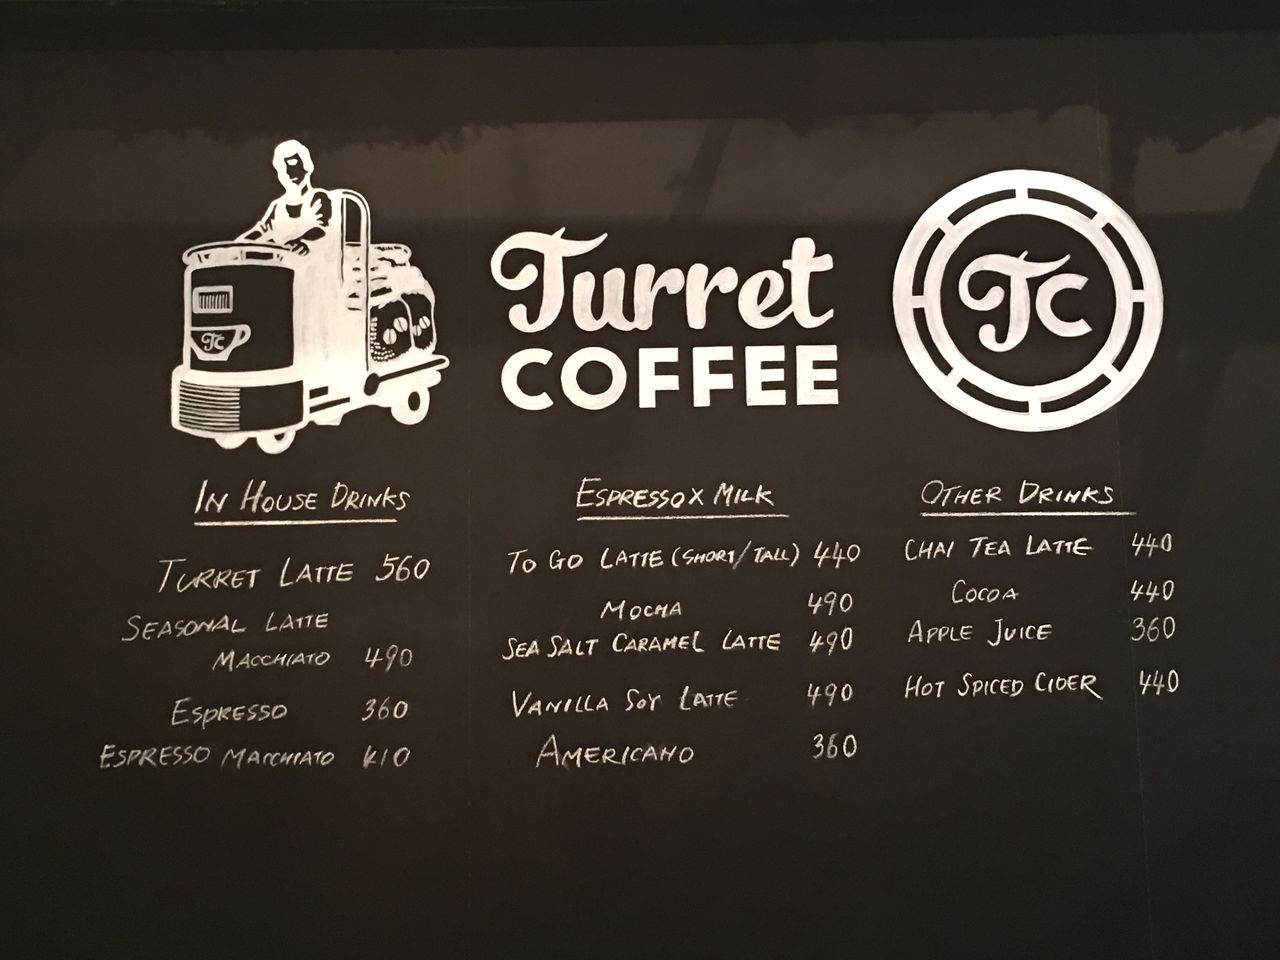 TC
Turret
COFFEE
TC
IN HOUSE DRINKS
TURRET LATTE 560
SEASONAL LATTE
MACCHIATO 490
ESPRESSO 360
ESPRESSO MACCHIATO 410
ESPRESSO X MILK
TO GO LATTE (SHORT/TALL) 440
MOCHA 490
SEA SALT CARAMEL LATTE 490
VANILLA SOY LATTE 490
AMERICANO 360
OTHER DRINKS
CHAI TEA LATTE 440
COCOA 440
APPLE JUICE 360
HOT SPICED CIDER 440